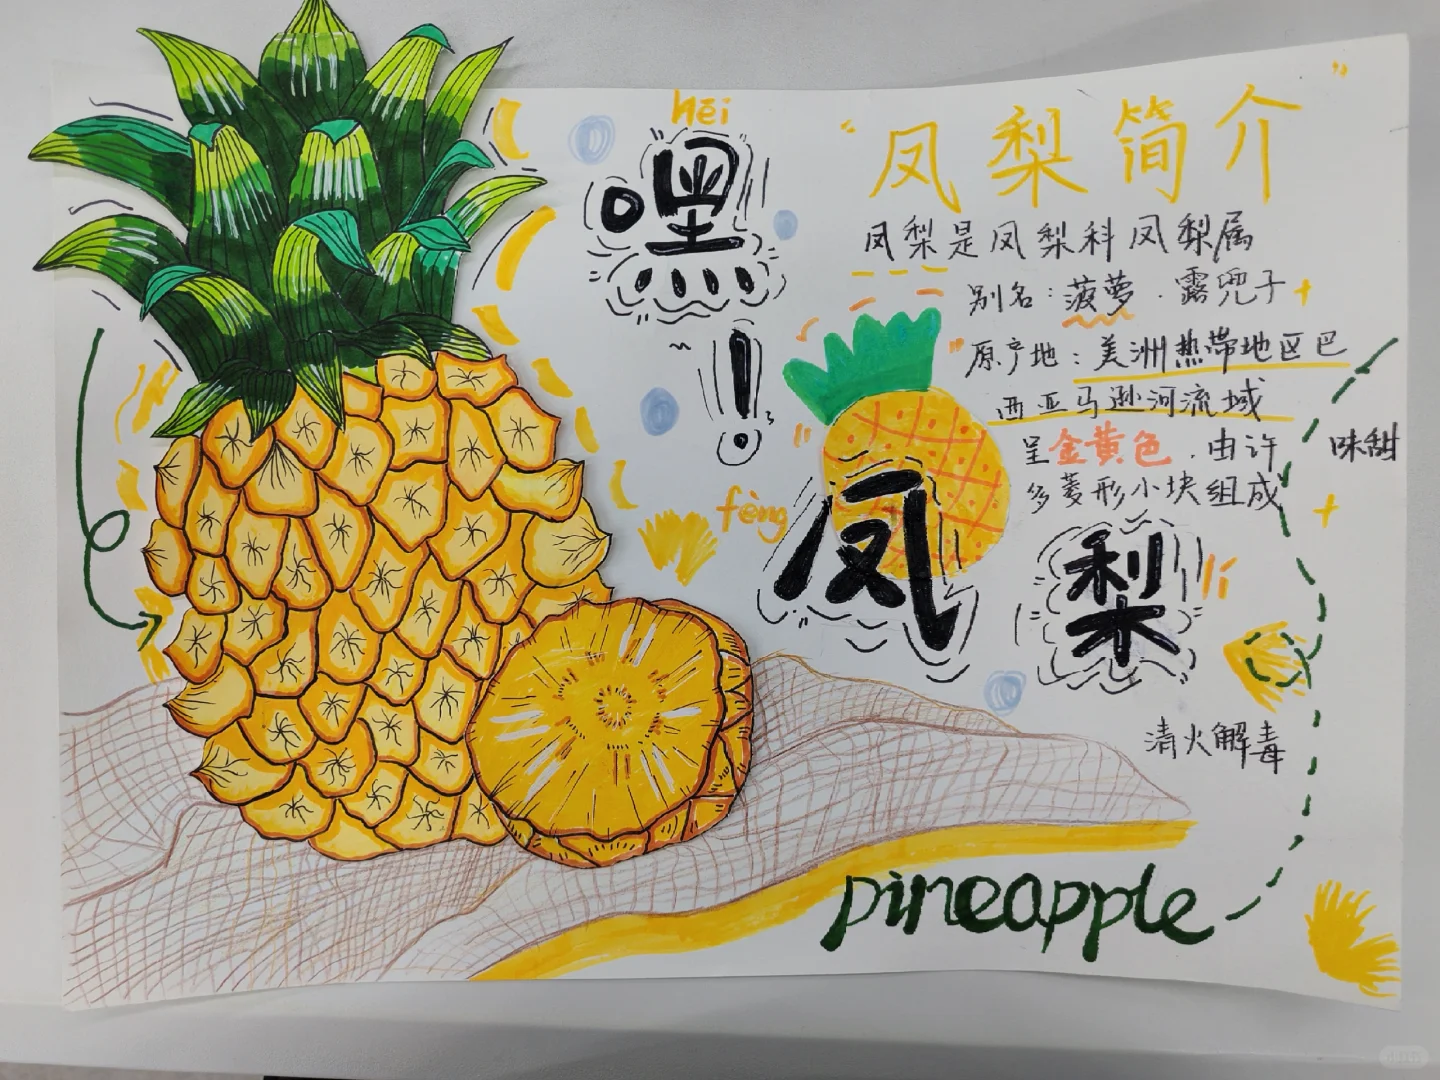 hēi
嘿
!
"凤梨简介"
凤梨是凤梨科凤梨属
别名：菠萝．露兜子
原产地：美洲热带地区巴
西亚马逊河流域
呈金黄色．由许
多菱形小块组成
味甜
fèng
凤
梨
lí
清火解毒
pineapple